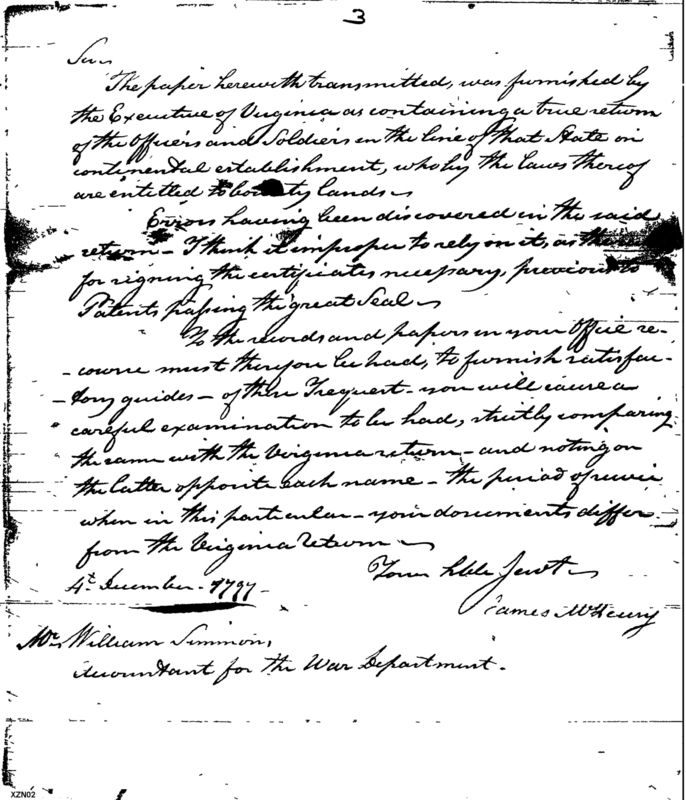 3
Sir,
The paper herewith transmitted, was furnished by
the Executive of Virginia as containing a true return
of the Officers and Soldiers in the line of that State on
continental establishment, who by the laws thereof
are entitled to bounty lands —
Errors having been discovered in the said
return — I think it improper to rely on it, as the
for signing the certificates necessary, previous to
Patents passing the great Seal —
To the records and papers in your Office re-
- course must therefore be had, to furnish satisfac-
- tory guides — of these I request — you will cause a
careful examination to be had, strictly comparing
the same with the Virginia return — and noting on
the latter opposite each name — the period of service
when in this particular — your documents differ
from the Virginia return —
Your hble Servt —
4th December 1797 —
James McHenry
Mr. William Simmons,
Accountant for the War Department.
XZN02